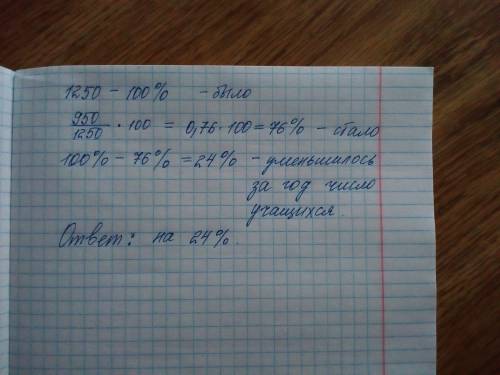 1250 – 100% – было
950/1250 · 100 = 0,76·100 = 76% – стало
100% – 76% = 24% – уменьшилось
за год число
учащихся.
Ответ: на 24%